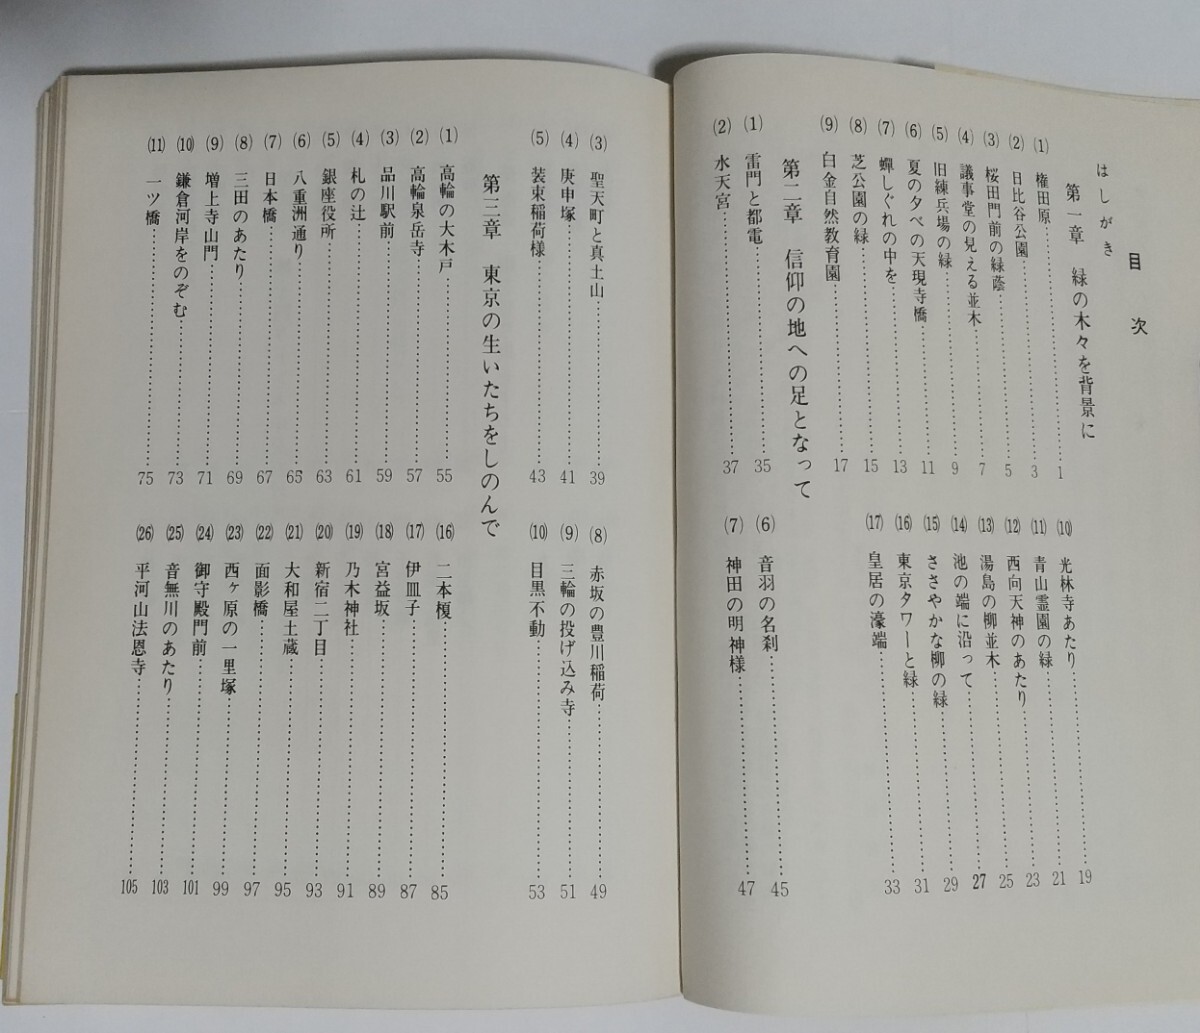 目次
はしがき
第一章 緑の木々を背景に
(1) 権田原 1
(2) 日比谷公園 3
(3) 桜田門前の緑蔭 5
(4) 議事堂の見える並木 7
(5) 旧練兵場の緑 9
(6) 夏の夕べの天現寺橋 11
(7) 蟬しぐれの中を 13
(8) 芝公園の緑 15
(9) 白金自然教育園 17
(10) 光林寺あたり 19
(11) 青山霊園の緑 21
(12) 西向天神のあたり 23
(13) 湯島の柳並木 25
(14) 池の端に沿って 27
(15) ささやかな柳の緑 29
(16) 東京タワーと緑 31
(17) 皇居の濠端 33
第二章 信仰の地への足となって
(1) 雷門と都電 35
(2) 水天宮 37
(6) 音羽の名刹 45
(7) 神田の明神様 47
(3) 聖天町と真土山 39
(4) 庚申塚 41
(5) 装束稲荷様 43
(8) 赤坂の豊川稲荷 49
(9) 三輪の投げ込み寺 51
(10) 目黒不動 53
第三章 東京の生いたちをしのんで
(1) 高輪の大木戸 55
(2) 高輪泉岳寺 57
(3) 品川駅前 59
(4) 札の辻 61
(5) 銀座役所 63
(6) 八重洲通り 65
(7) 日本橋 67
(8) 三田のあたり 69
(9) 増上寺山門 71
(10) 鎌倉河岸をのぞむ 73
(11) 一ツ橋 75
(16) 二本榎 85
(17) 伊皿子 87
(18) 宮益坂 89
(19) 乃木神社 91
(20) 新宿二丁目 93
(21) 大和屋土蔵 95
(22) 面影橋 97
(23) 西ヶ原の一里塚 99
(24) 御守殿門前 101
(25) 音無川のあたり 103
(26) 平河山法恩寺 105